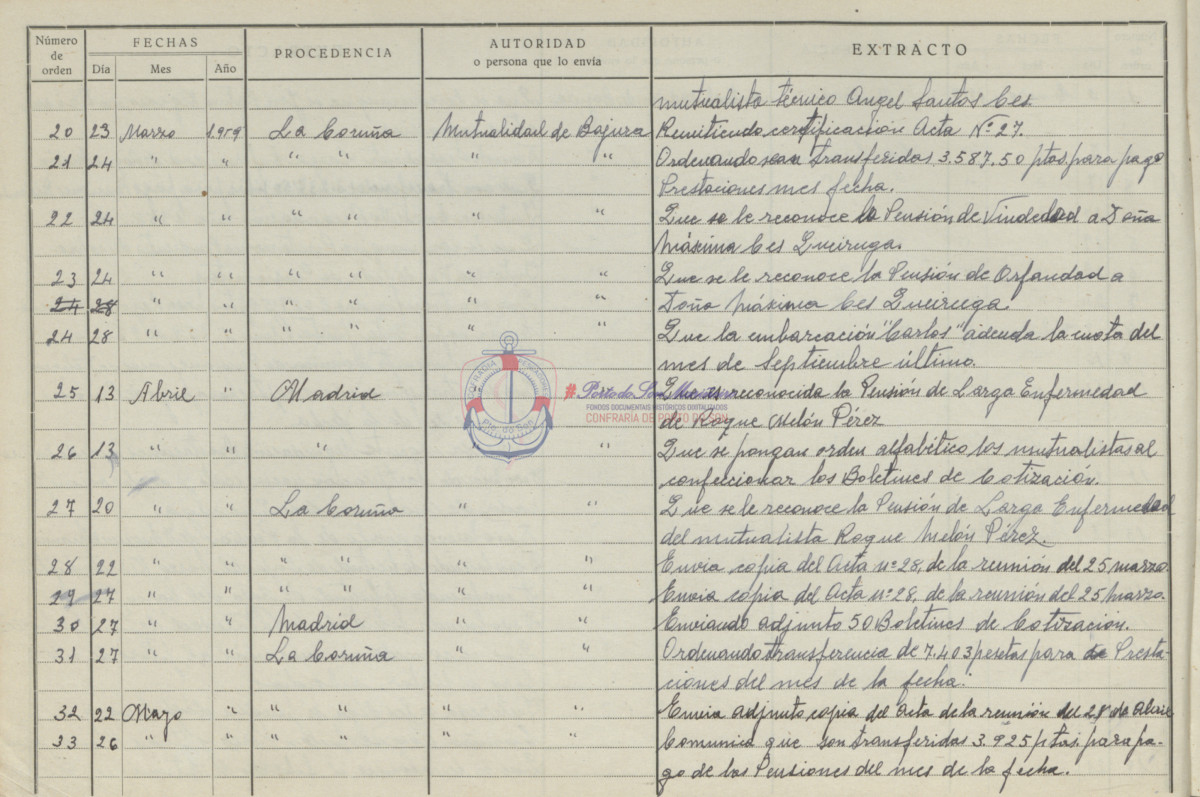 Número de orden FECHAS Día Mes Año PROCEDENCIA AUTORIDAD o persona que lo envía EXTRACTO
mutualista técnico Angel Santos Ces.
20 23 Marzo 1.959 La Coruña Mutualidad de Bajura Remitiendo certificación Acta Nº 27.
21 24 " " " " " " Ordenando sean transferidas 3.587,50 ptas. para pago
Prestaciones mes fecha.
22 24 " " " " " " Que se le reconoce la Pensión de Viudedad a Doña
Máxima Ces Queiruga.
23 24 " " " " " " Que se le reconoce la Pensión de Orfandad a
24 28 " " " " " " Doña Máxima Ces Queiruga
24 28 " " " " " " Que la embarcación "Carlos" adeuda la cuota del
mes de Septiembre último.
25 13 Abril " Madrid Que es reconocida la Pensión de Larga Enfermedad
de Roque Melón Pérez
26 13 " " " " " Que se pongan orden alfabético los mutualistas al
confeccionar los Boletines de Cotización.
27 20 " " La Coruña " " Que se le reconoce la Pensión de Larga Enfermedad
del mutualista Roque Melón Pérez.
28 22 " " " " " " Envia copia del Acta nº 28, de la reunión del 25 marzo.
29 27 " " " " " " Envia copia del Acta nº 28, de la reunión del 25 Marzo.
30 27 " " Madrid " " Enviando adjunto 50 Boletines de Cotización.
31 27 " " La Coruña " " Ordenando transferencia de 7.403 pesetas para de Presta-
ciones del mes de la fecha.
32 22 Mayo " " " " " Envia adjunto copia del acta de la reunión del 28 de Abril
33 26 " " " " " " Comunica que son transferidas 3.925 ptas. para pa-
go de las Pensiones del mes de la fecha.
COFRADÍA PESCADORES
Pto. do Son
#Porto do Son
FONDOS DOCUMENTAIS HISTÓRICOS DIGITALIZADOS
CONFRARÍA DE PORTO DO SON